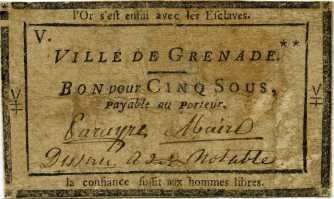 l'Or s'est enfui avec les Esclaves.
V.
VILLE DE GRENADE.**
BON pour CINQ SOUS,
Payable au Porteur.
Maire
Notable
la confiance suffit aux hommes libres.